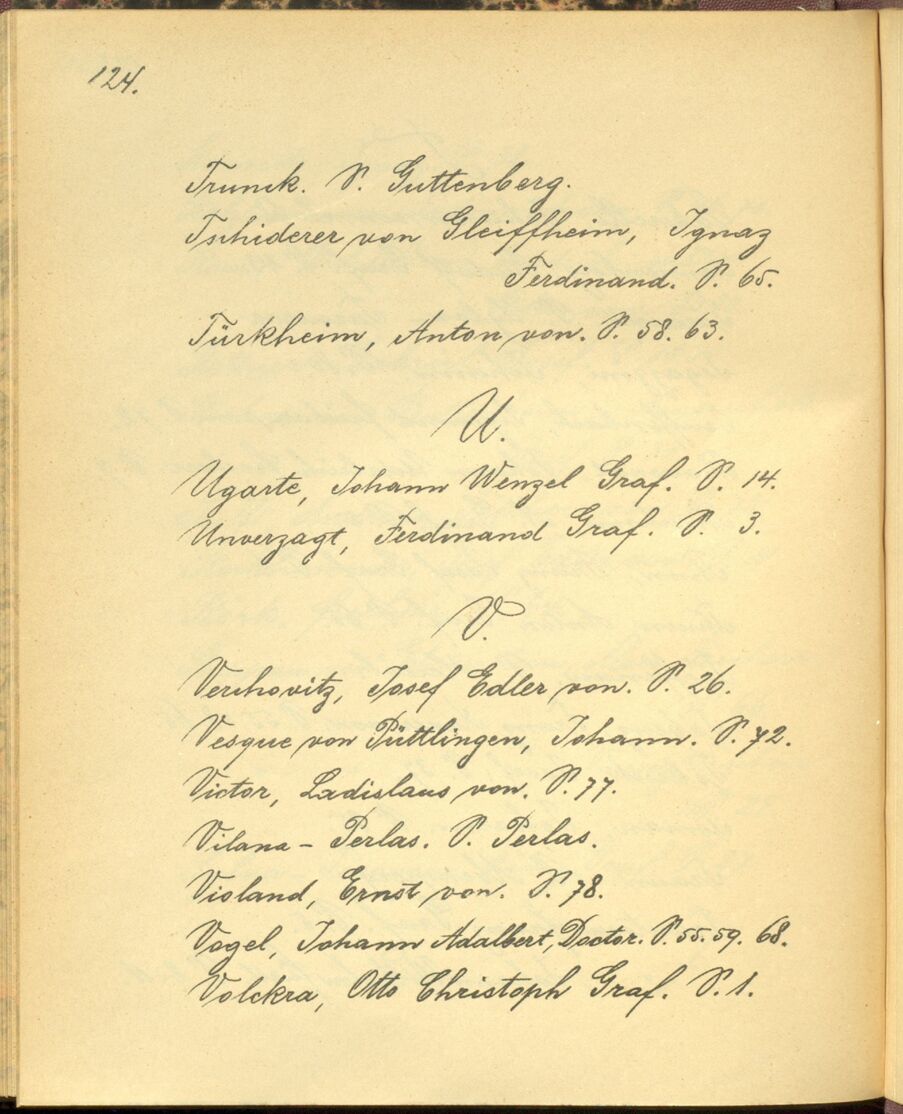 124.
Trunck. S. Guttenberg.
Tschiderer von Gleiffheim, Ignaz
Ferdinand. S. 65.
Türkheim, Anton von. S. 58. 63.
U.
Ugarte, Johann Wenzel Graf. S. 14.
Unverzagt, Ferdinand Graf. S. 3.
V.
Verchovitz, Josef Edler von. S. 26.
Vesque von Püttlingen, Johann. S. 72.
Victor, Ladislaus von. S. 77.
Vilana - Perlas. S. Perlas.
Violand, Ernst von. S. 78.
Vogel, Johann Adalbert, Doctor. S. 55. 59. 68.
Volckra, Otto Christoph Graf. S. 1.